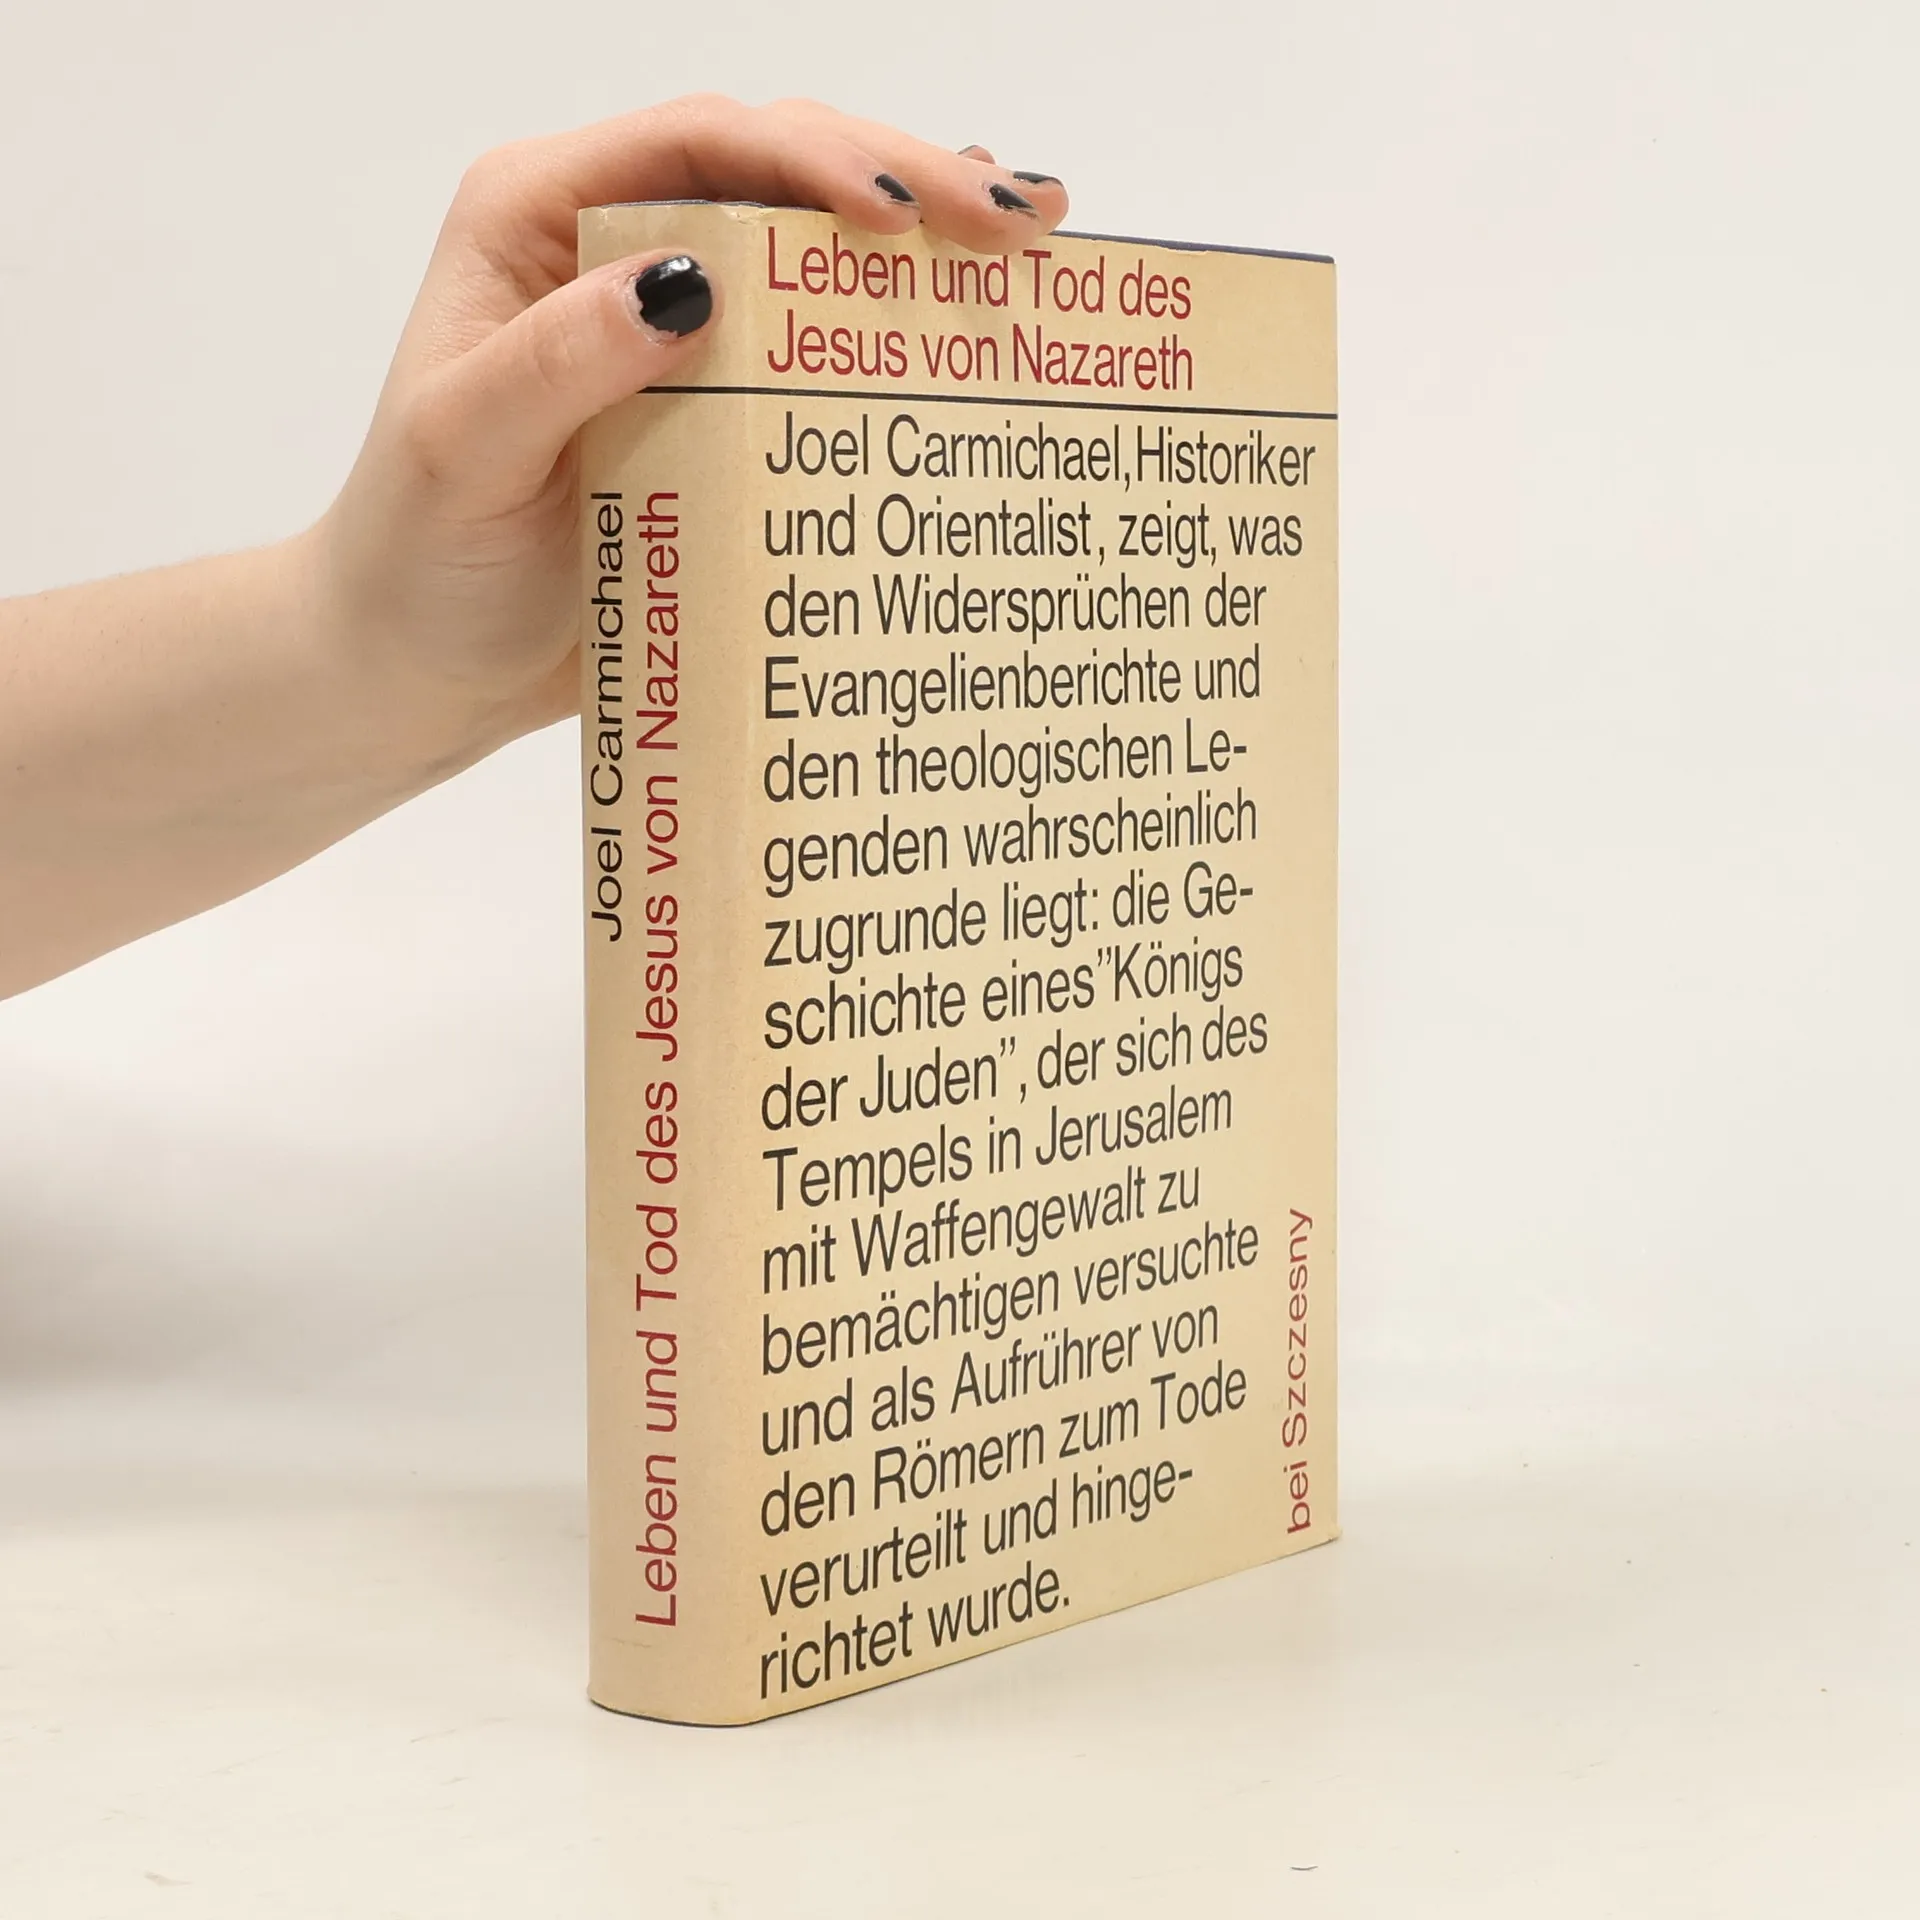 Joel Carmichael
Leben und Tod des Jesus von Nazareth
Leben und Tod des
Jesus von Nazareth
Joel Carmichael, Historiker
und Orientalist, zeigt, was
den Widersprüchen der
Evangelienberichte und
den theologischen Le-
genden wahrscheinlich
zugrunde liegt: die Ge-
schichte eines ”Königs
der Juden”, der sich des
Tempels in Jerusalem
mit Waffengewalt zu
bemächtigen versuchte
und als Aufrührer von
den Römern zum Tode
verurteilt und hinge-
richtet wurde.
bei Szczesny